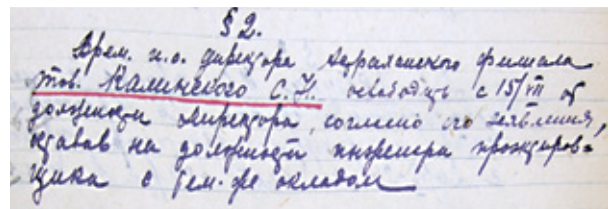 § 2.
Врем. и.о. директора Авраамского филиала
тов. Калинского С.Н. освободить с 15/VII от
должности директора, согласно его заявления,
оставив на должности инженера проектиров-
щика с тем-же окладом